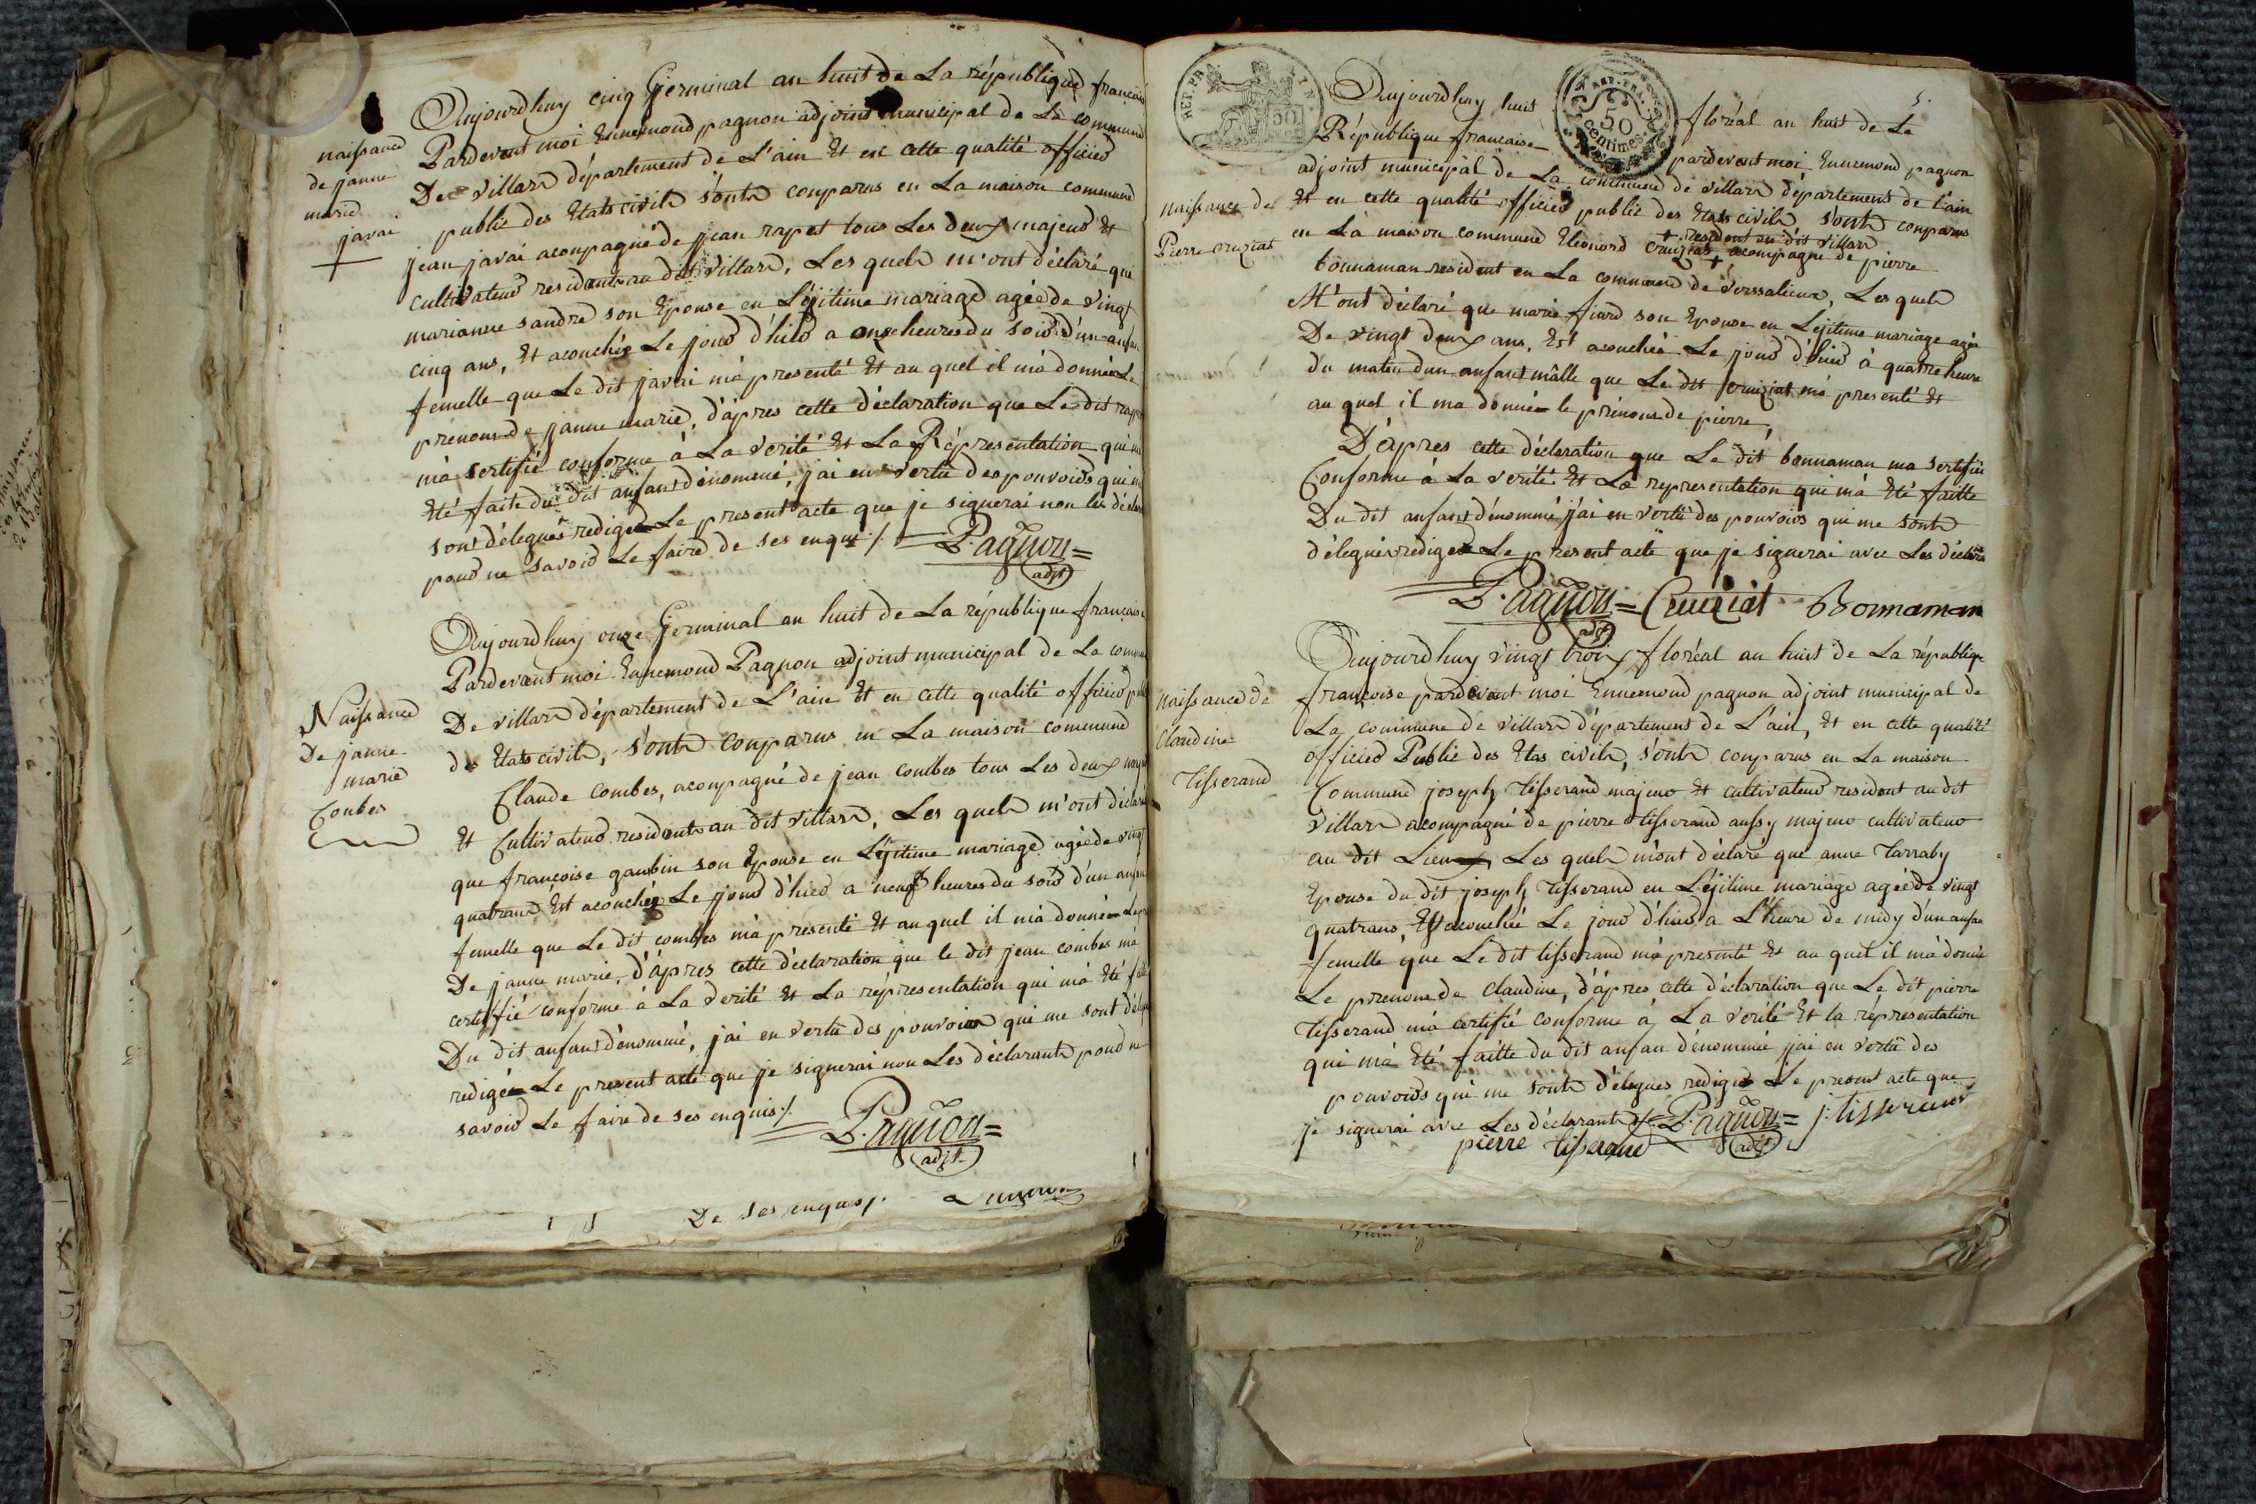 Aujourdhuy cinq Germinal an huit de La république français
Pardevent moi Ennemond pagnon adjoint municipal de La commune
De villars département de L'ain Et en cette qualité officier
public des Etats civils sonts conparus en La maison commune
jean javai acompagné de jean rapet tous Les deux majeur Et
cultivateur residents au dit villars, Les quels m'ont déclaré que
marianne sandre son Epouse en Léjitime mariage agée de vingt
cinq ans, Et acouchée Le jour d'hier a onze heures du soir d'un anfan
femelle que Le dit javai m'a presenté Et au quel il m'a donnée Le
prenom de janne marie, d'âpres cette déclaration que Le dit rapet
m'a sertifié conforme à La verité Et La Répresentation qui m'a
Eté faite du dit anfant dénommé, j'ai en vertu des pouvoirs qui me
sont délegués rediger Le present acte que je signerai non les déclar
pour ne savoir Le faire de ses enqui ./. P. agnon =
adjt
naissance
de janne
marie
javai
Aujourdhuy onze Germinal an huit de La république française
Pardevant moi Ennemond Pagnon adjoint municipal de La comm
De villars département de L'ain Et en cette qualité officier pub
des Etats civils, sonts conparus en La maison commune
Claude combes, acompagné de jean combes tous Les deux majeu
Et Cultivateur residents au dit villars, Les quels m'ont déclaré
que françoise gaubin son Epouse en Léjitime mariage agée de vingt
quatrans Est acouchée Le jour d'hier a neuf heures du soir d'un anfan
femelle que Le dit combes m'a presenté Et au quel il m'a donnée Le pr
De janne marie, d'âpres cette déclaration que le dit jean combes m'a
certiffié conforme à La verité Et La répresentation qui m'a Eté fait
Du dit anfant dénommé, j'ai en vertu des pouvoirs qui me sont déleg
redigée Le present acte que je signerai non Les déclarants pour ne
savoir Le faire de ses enquis ./. P. agnon =
adjt
Naissance
De janne
marie
Conbes
De ses enquis ./.
5.
REP. FRA
50
REP. FRA.
50
centimes
Aujourdhuy huit floréal an huit de La
République française pardevent moi Ennemond pagnon
adjoint municipal de La commune de villars département de l'ain
Et en cette qualité officier public des Etats civils sonts conparus
+ resident au dit villars
en La maison commune Eléonord Cruiziat + acompagné de pierre
bonnaman resident en La commune de verssalieux, Les quels
M'ont déclaré que marie fiard son Epouse en Léjitime mariage agée
De vingt deux ans, Est acouchée Le jour d'hier à quatre heure
du matin dun anfant mâlle que Le dit Cruiziat m'a presenté Et
au quel il ma donnée le prénom de pierre,
D'âpres cette déclaration que Le dit bonnaman ma sertifié
Conforme à La verité Et La representation qui m'a Eté faitte
Du dit anfant dénommé j'ai en vertu des pouvoirs qui me sonts
délegués rediger Le present acte que je signerai avec Les déclara
P. agnon = Cruiziat Bonnaman
adjt
naissance de
Pierre cruziat
Aujourdhuy vingt troix floréal an huit de La république
françoise pardevant moi Ennemond pagnon adjoint municipal de
La commune de villars département de L'ain, Et en cette qualité
officier Public des Etas civils, sonts conparus en La maison
Commune joseph tisserand majeur Et cultivateur resident au dit
villars acompagné de pierre tisserand aussy majeur cultivateur
au dit Lieu Les quels m'ont déclaré que anne tarraby
Epouse du dit joseph tisserand en Léjitime mariage agée de vingt
quatrans, Est acouchée Le jour d'hier a L'heure de midy d'un anfan
femelle que Le dit tisserand m'a presenté Et au quel il m'a donnée
Le prenom de claudine, d'âpres cette déclaration que Le dit pierre
tisserand m'a certifié conforme à La verité Et la répresentation
qui m'a Eté faitte du dit anfan dénommé j'ai en vertu des
pouvoirs qui me sonts délegues rediger Le present acte que
je signerai avec Les déclarants ./. P. agnon = j. tisserand
pierre tiserand adjt
naissance de
Claudine
Tisserand